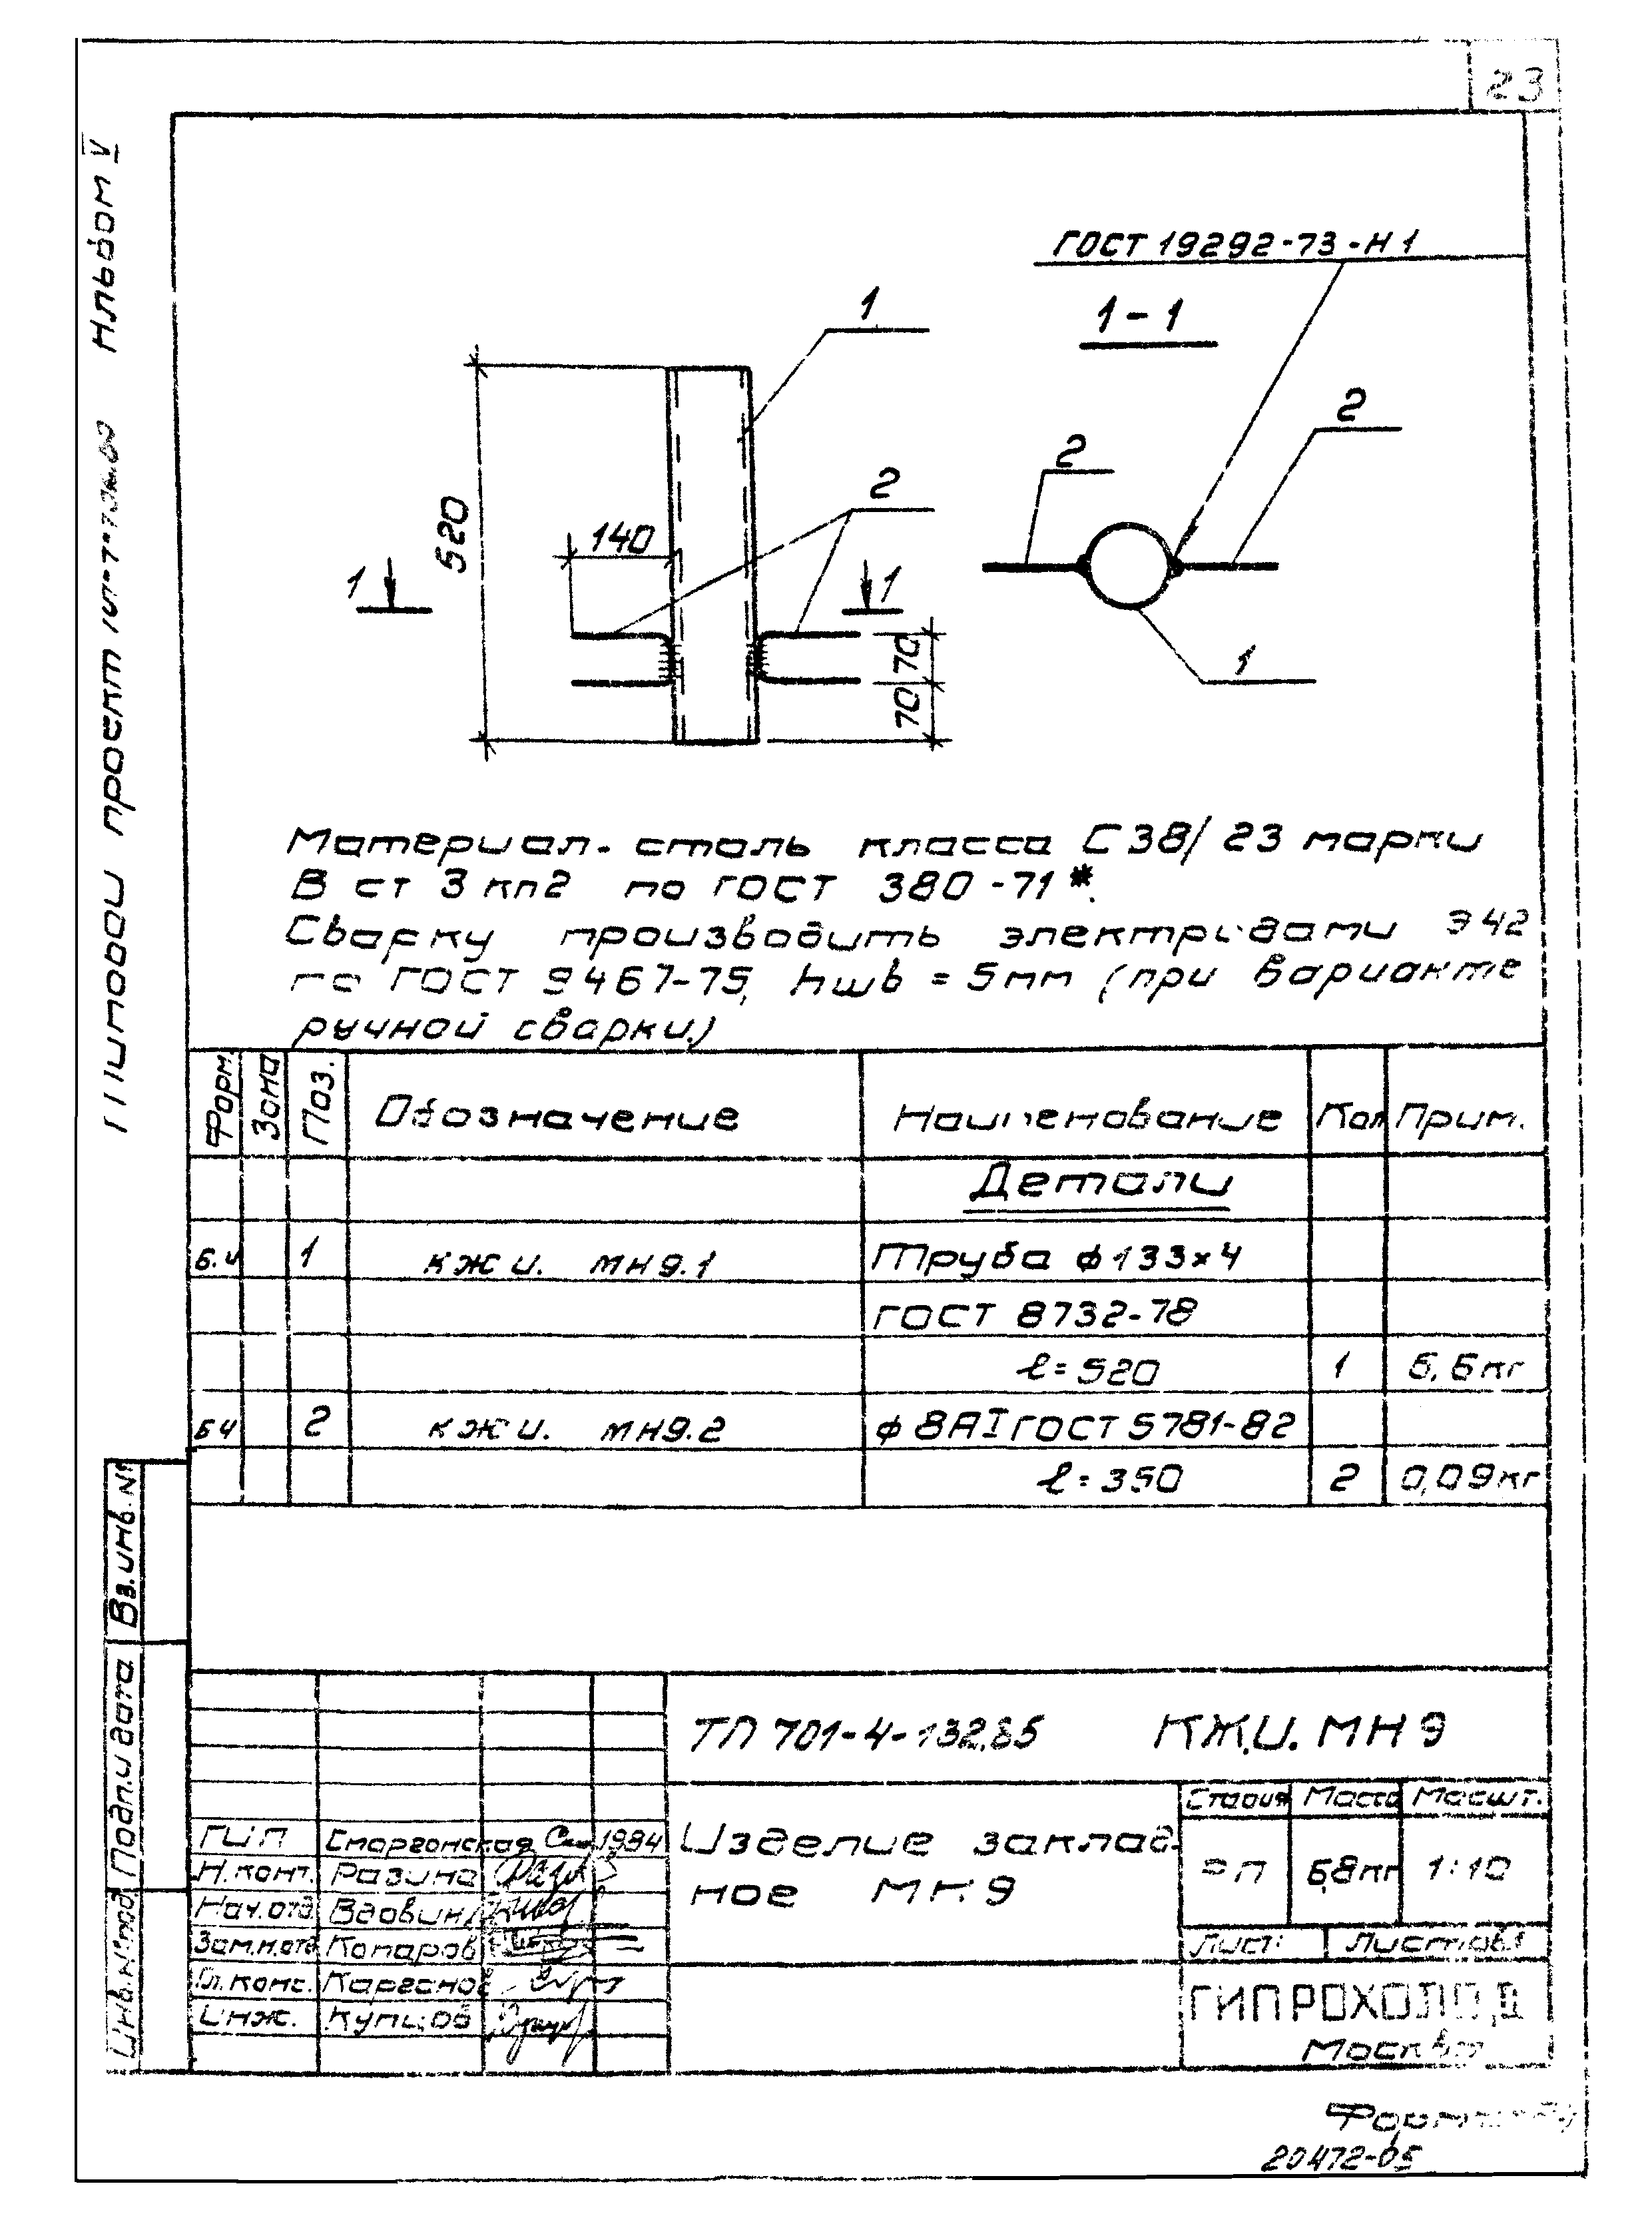 23
Альбом V
Типовой проект
ГОСТ 19292-73-Н1
1-1
1
2
2
2
520
140
1
1
70
70
1
Материал- сталь класса С38/23 марки
В ст 3 кп2 по ГОСТ 380-71*.
Сварку производить электродами Э42
по ГОСТ 9467-75, hшв = 5мм (при варианте
ручной сварки.)
Форм. Зона Поз. Обозначение Наименование Кол Прим.
Детали
Б.Ч 1 КЖИ. МН9.1 Труба ф133x4
ГОСТ 8732-78
ℓ=520 1 6,6кг
БЧ 2 КЖИ. МН9.2 ф8АI ГОСТ 5781-82
ℓ=350 2 0,09кг
Вз.инв.№
Подп.и дата
Инв.№под
ТП 701-4-132.85 КЖ.И.МН9
Стадия Масса Масшт.
ГИП Сморгонская 1984
Изделие заклад-
ное МН9
РП 6,8кг 1:10
Н.конт. Разина
Нач.отд. Вдовин
Зам.н.отд Копаров
Лист: Листов:1
Гл.конс. Карганов
Инж. Купцов
ГИПРОХОЛОД
Москва
Формат
20472-05